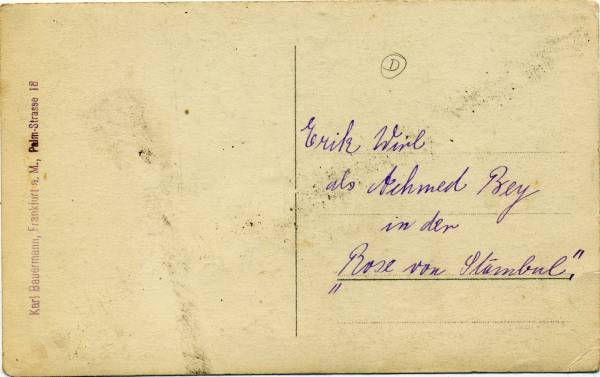 Karl Bauermann, Frankfurt a. M., Palm-Strasse 18
D
Erik Wirl
als Achmed Bey
in der
"Rose von Stambul."